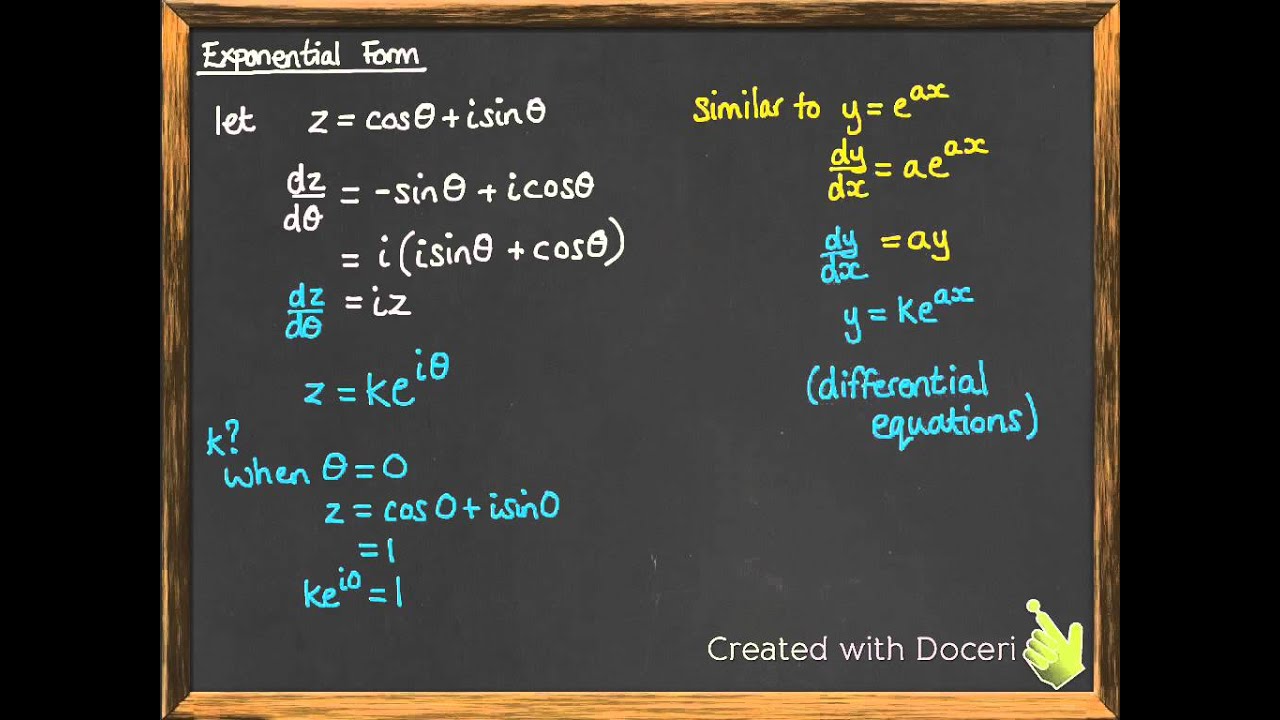 Exponential Form
let z = cosθ + isinθ
dz/dθ = -sinθ + icosθ
= i(isinθ + cosθ)
dz/dθ = iz
z = ke^{iθ}
k?
when θ = 0
z = cos0 + isin0
= 1
ke^{i0} = 1
Similar to y = e^{ax}
dy/dx = ae^{ax}
dy/dx = ay
y = ke^{ax}
(differential
equations)
Created with Doceri